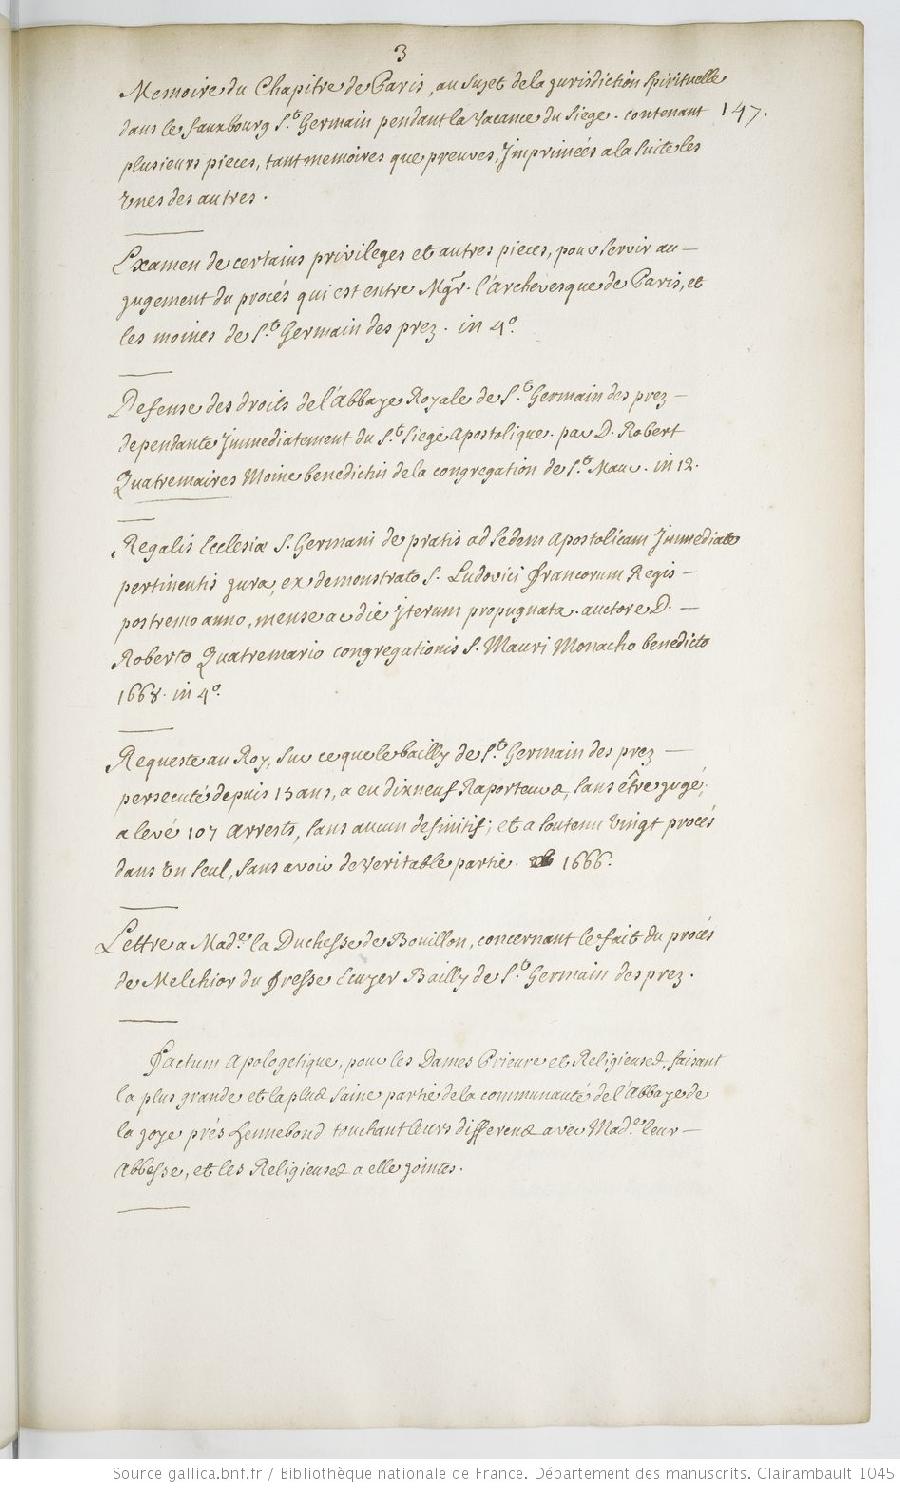 3
Memoire du Chapitre de Paris, au sujet de la jurisdiction spirituelle
dans le fauxbourg S.t Germain pendant la vacance du siege. contenant
147.
plusieurs pieces, tant memoires que preuves, Imprimées a la suite les
unes des autres.
Examen de certains privileges et autres pieces, pour servir au —
jugement du procés qui est entre Mgr. l'Archevesque de Paris, et
les moines de S.t Germain des prez. in 4.o
Defense des droits de l'Abbaye Royale de S.t Germain des prez —
dependante Immediatement du S.t Siege Apostolique. par D. Robert
Quatremaires Moine benedictin de la congregation de S.t Maur. in 12.
Regalis Ecclesiæ S. Germani de pratis ad sedem Apostolicam Immediate
pertinentis jura, ex demonstrato S. Ludovici francorum Regis —
postremo anno, mense ac die Iterum propugnata. auctore D. —
Roberto Quatremario congregationis S. Mauri Monacho benedicto
1668. in 4.o
Requeste au Roy, sur ce que le bailly de S.t Germain des prez —
persecuté depuis 15 ans, a eu dixneuf Raporteurs, sans être jugé,
a levé 107 Arrests, sans aucun definitif; et a soutenu vingt procés
dans un seul, sans avoir de veritable partie 1666.
Lettre a Mad.e la Duchesse de Bouillon, concernant le fait du procés
de Melchior du fresse Ecuyer Bailly de S.t Germain des prez.
Factum Apologetique, pour les Dames Prieure et Religieuses, faisant
la plus grande et la plus saine partie de la communauté de l'Abbaye de
la joye prés hennebond touchant leurs differens avec Mad.e leur —
Abbesse, et les Religieuses a elle jointes.
Source gallica.bnf.fr / Bibliothèque nationale de France. Département des manuscrits. Clairambault 1045